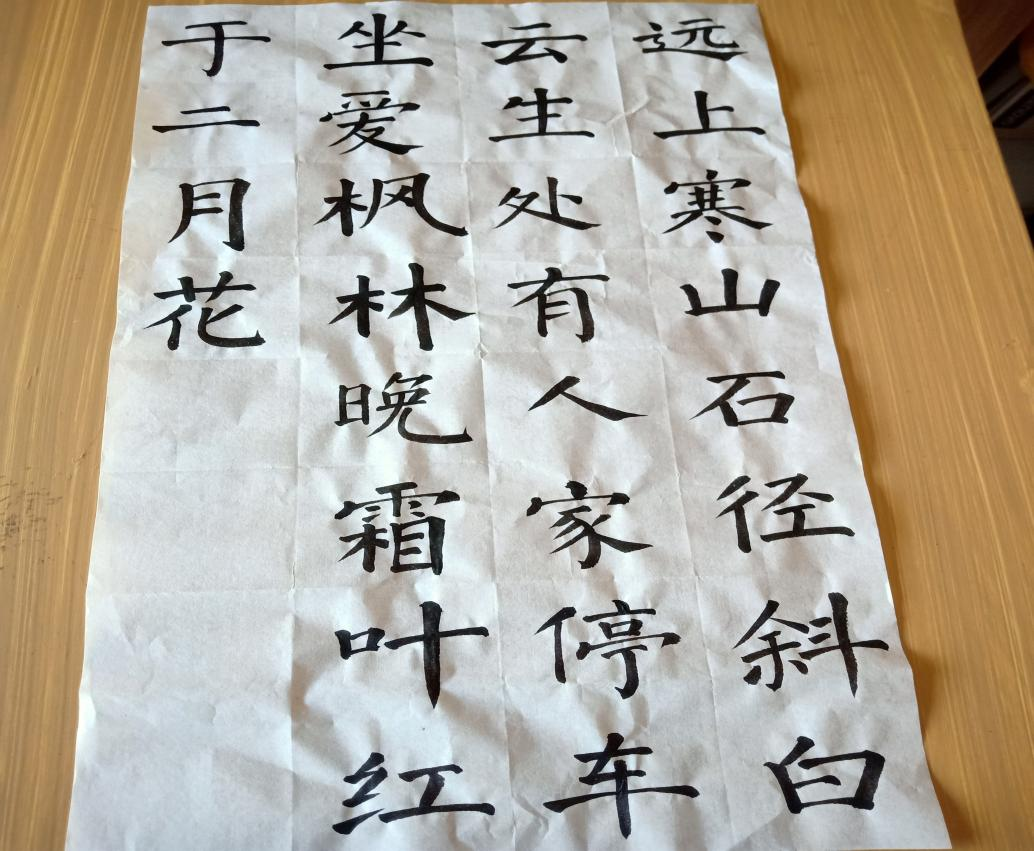 远上寒山石径斜白
云生处有人家停车
坐爱枫林晚霜叶红
于二月花